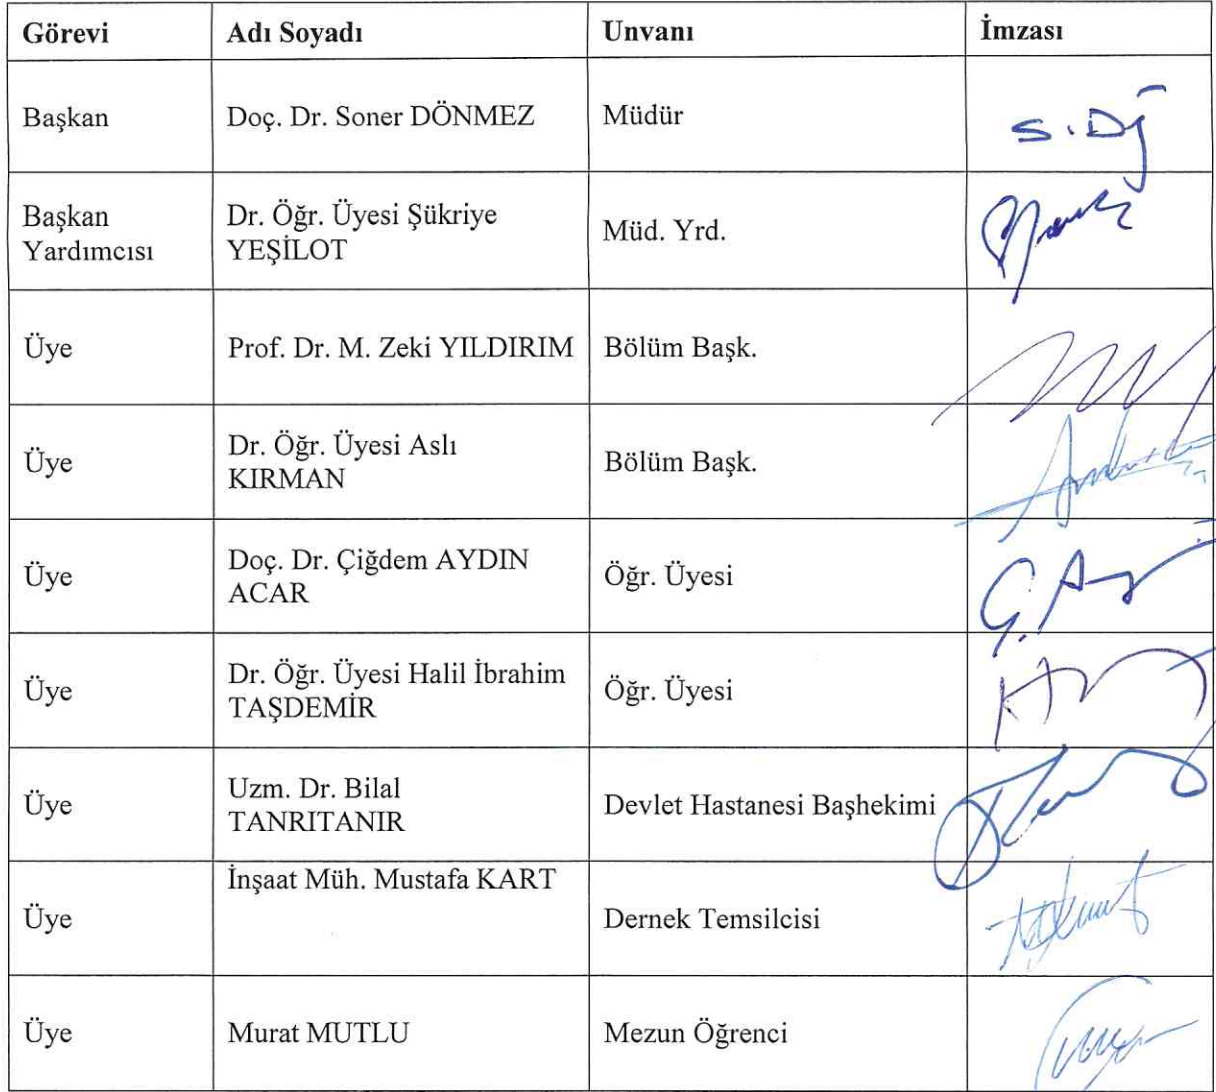 Görevi Adı Soyadı Unvanı İmzası
Başkan Doç. Dr. Soner DÖNMEZ Müdür
Başkan Yardımcısı Dr. Öğr. Üyesi Şükriye YEŞİLOT Müd. Yrd.
Üye Prof. Dr. M. Zeki YILDIRIM Bölüm Başk.
Üye Dr. Öğr. Üyesi Aslı KIRMAN Bölüm Başk.
Üye Doç. Dr. Çiğdem AYDIN ACAR Öğr. Üyesi
Üye Dr. Öğr. Üyesi Halil İbrahim TAŞDEMİR Öğr. Üyesi
Üye Uzm. Dr. Bilal TANRITANIR Devlet Hastanesi Başhekimi
Üye İnşaat Müh. Mustafa KART Dernek Temsilcisi
Üye Murat MUTLU Mezun Öğrenci